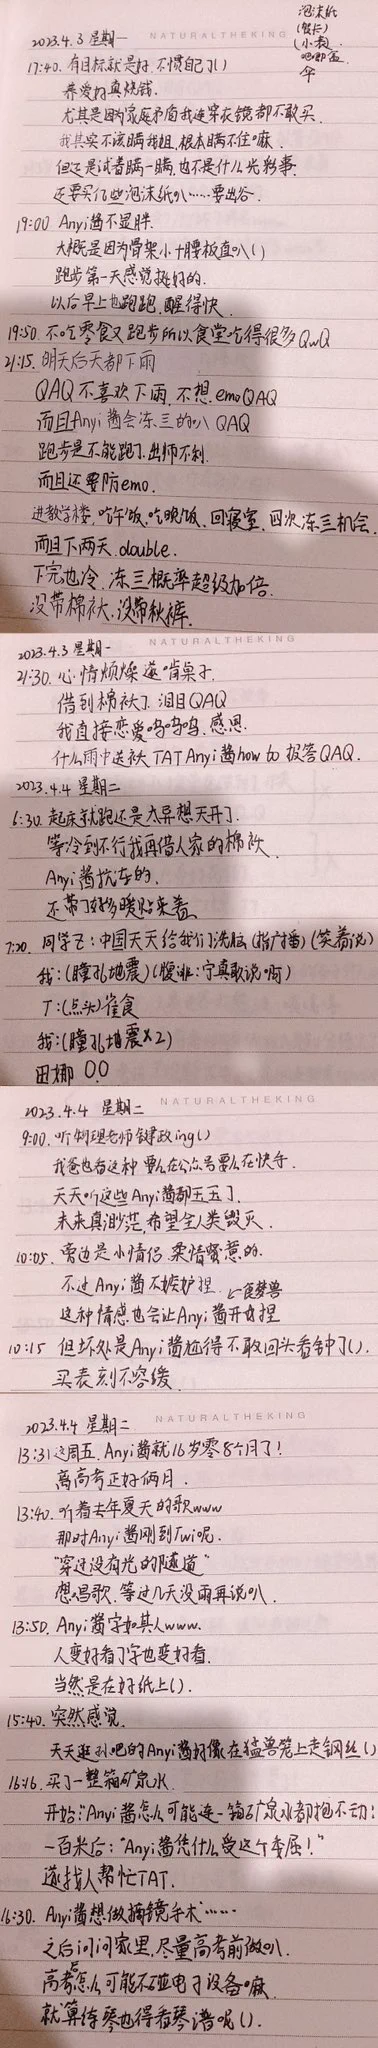 泡沫纸
(贺卡)
(小表)
2023.4.3 星期一
NATURALTHEKING
17:40. 有目标就是好,不惯自己()
养爱好真烧钱.
尤其是因为家庭矛盾我连穿衣镜都不敢买.
我其实不该瞒我姐,根本瞒不住嘛.
但还是试着瞒一瞒,也不是什么光彩事.
还要买些泡沫纸叭……要出谷.
19:00 Anyi酱不显胖.
大概是因为骨架小+腰板直叭()
跑步第一天感觉挺好的.
以后早上也跑跑,醒得快.
19:50. 不吃零食又跑步所以食堂吃得很多QwQ
21:15. 明天后天都下雨
QAQ 不喜欢下雨,不想emoQAQ
而且Anyi酱会冻三的叭 QAQ
跑步是不能跑了.出师不利.
而且还要防emo.
进教学楼,吃午饭,吃晚饭,回寝室,四次冻三机会.
而且下两天,double.
下完也冷,冻三概率超级加倍.
没带棉衣,没带秋裤.
2023.4.3 星期一
NATURALTHEKING
21:30. 心情烦燥遂啃桌子.
借到棉袄了,泪目QAQ
我直接恋爱呜呜呜,感恩.
什么雨中送袄TATAnyi酱how to 报答QAQ.
2023.4.4 星期二
6:30. 起床就跑还是太异想天开了.
等冷到不行我再借人家的棉袄
Anyi酱抗冻的.
还带了好多暖贴来着
7:20. 同学Z:中国天天给我们洗脑(指广播)(笑着说)
我:(瞳孔地震)(腹诽:宁真敢说啊)
T:(点头)雀食
我:(瞳孔地震×2)
田娜 O.O
2023.4.4 星期二
NATURALTHEKING
9:00. 听物理老师键政ing()
我爸也看这种 要么在公众号要么在快手.
天天听这些Anyi酱都玉玉了.
未来真渺茫,希望全人类毁灭.
10:05. 旁边是小情侣,柔情蜜意的.
不过Anyi酱不嫉妒捏. ←食梦兽
这种情感也会让Anyi酱开心捏
10:15 但坏处是Anyi酱尬得不敢回头看钟了().
买表刻不容缓.
2023.4.4 星期二
NATURALTHEKING
13:31 这周五,Anyi酱就16岁零8个月了!
离高考正好俩月.
13:40. 听着去年夏天的歌www
那时Anyi酱刚到Twi呢.
“穿过没有光的隧道”
想唱歌,等过几天没雨再说叭.
13:50. Anyi酱字如其人www.
人变好看了字也变好看.
当然是在好纸上().
15:40. 突然感觉.
天天逛孙吧的Anyi酱好像在猛兽笼上走钢丝()
16:16. 买了一整箱矿泉水
开始:“Anyi酱怎么可能连一箱矿泉水都抱不动!
一百米后:“Anyi酱凭什么受这个委屈!”
遂找人帮忙TAT.
16:30. Anyi酱想做摘镜手术……
之后问问家里,尽量高考前做叭.
高考怎么可能不碰电子设备嘛
后
就算练琴也得看琴谱呢().